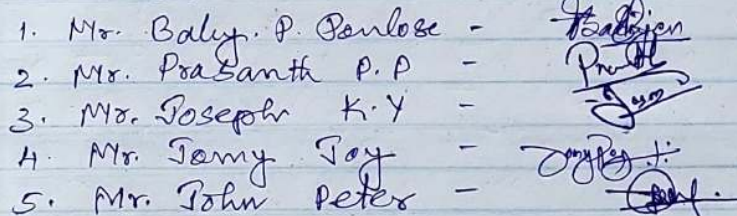 1. Mr. Baby. P. Poulose -
2. Mr. Prasanth P.P -
3. Mr. Joseph K.Y -
4. Mr. Jomy Joy -
5. Mr. John Peter -